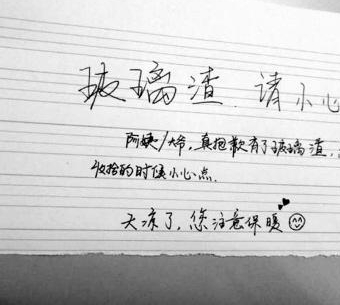 玻璃渣.请小心
阿姨/大爷,真抱歉有了玻璃渣,
收拾的时候小心点.
天凉了,您注意保暖